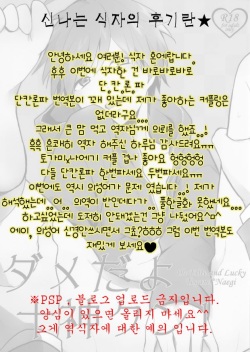 신나는 식자의 후기란★
안녕하세요 여러분! 식자 훈어랍니다.
후훗 이번에 식자한 건 바로바로바로
단.간.론.파
단간론파 번역본이 꽤 있는데 제가 좋아하는 커플링은
없더라구요...
그래서 큰 맘 먹고 역자님께 의뢰를 했죠..!
흔쾌히 역자 해주신 하루님 감사드려요ㅠㅠ
토가미/나에기 커플 겁나 좋아요 헝헝헝헝
다들 단간론파 한번파세요 두번파세요ㅠㅠ
이번에도 역시 의성어가 문제 였습니다..! 제가
해석했는데..어.. 의역이 반인데다가.. 풀한글화 노렸는데..
하고싶었는데 도저히 안돼겠는건 걍 나뒀어요^^
에이, 의성어 신경안쓰시면서 그럼 이번 번역본도
재밌게 보세요♥
※PSP, 블로그 업로드 금지입니다.
양심이 있으면 올리지 마세요^^
그게 역식자에 대한 예의 입니다.
ダメだよ
Lucky
Naegi
R18